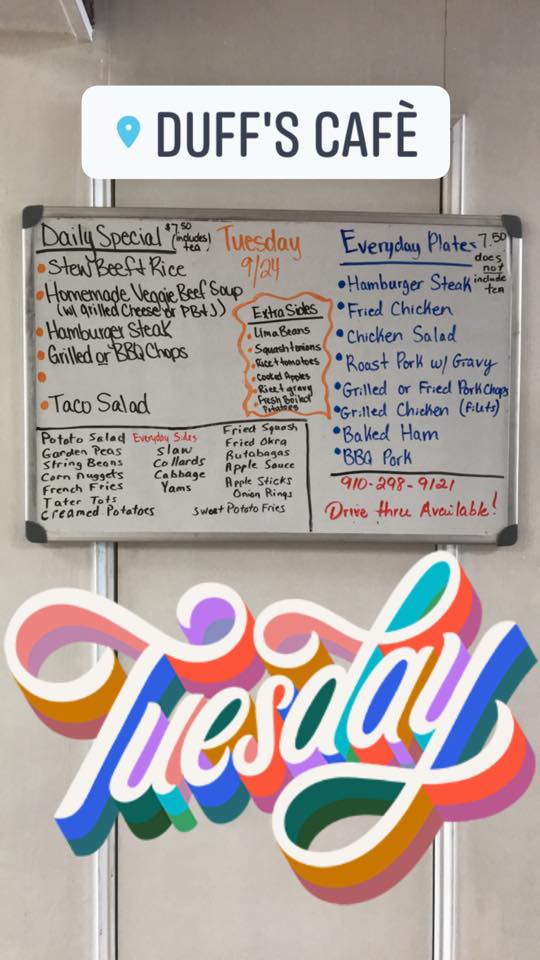 DUFF'S CAFÈ
Daily Special $7.50 (includes tea)
Tuesday
9/24
Stew Beef & Rice
Homemade Veggie Beef Soup
(w/ Grilled Cheese or PB&J)
Hamburger Steak
Grilled or BBQ Chops
Taco Salad
Extra Sides
Lima Beans
Squash & onions
Rice & tomatoes
Cooked Apples
Rice & gravy
Fresh Boiled
Potatoes
Everyday Plates 7.50
does
not
include
tea
Hamburger Steak
Fried Chicken
Chicken Salad
Roast Pork w/ Gravy
Grilled or Fried Pork Chops
Grilled Chicken (Filets)
Baked Ham
BBQ Pork
Everyday Sides
Potato Salad
Garden Peas
String Beans
Corn Nuggets
French Fries
Tater Tots
Creamed Potatoes
Slaw
Collards
Cabbage
Yams
Fried Squash
Fried Okra
Rutabagas
Apple Sauce
Apple Sticks
Onion Rings
Sweet Potato Fries
910-298-9121
Drive thru Available!
Tuesday